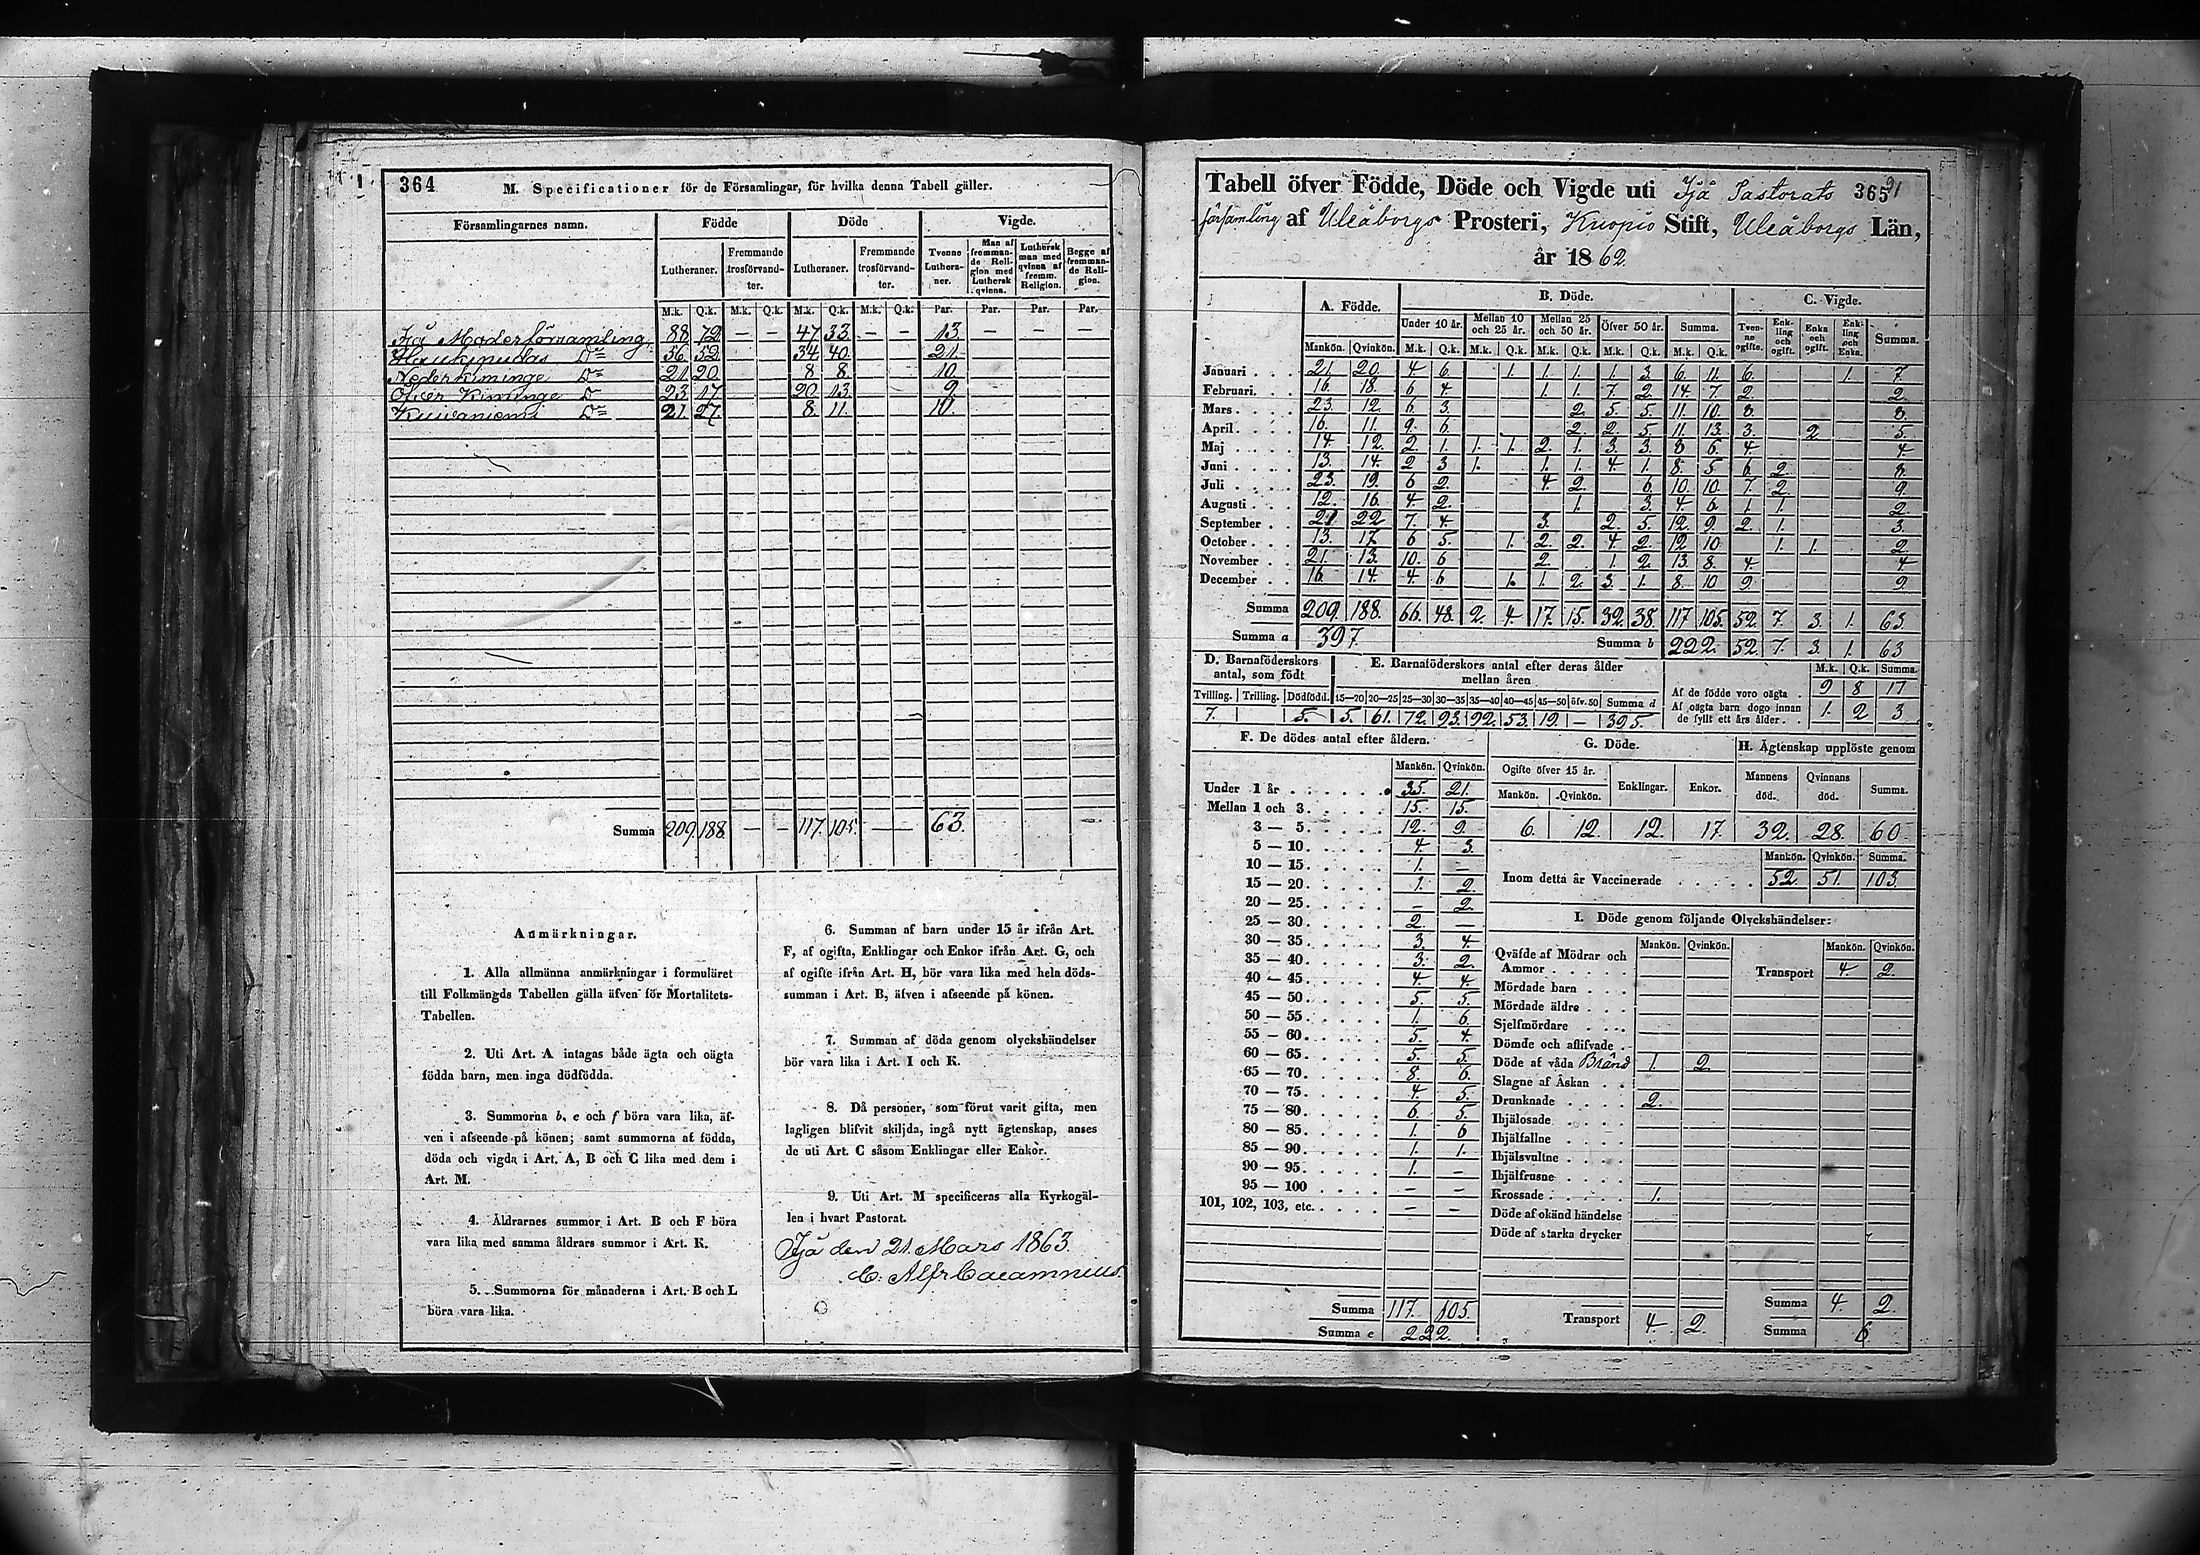 364 M. Specificationer för de Församlingar, för hvilka denna Tabell gäller.
Församlingarnes namn. Födde Döde Vigde.
Lutheraner. Fremmande trosförvandter. Lutheraner. Fremmande trosförvandter. Tvenne Lutheraner. Man af fremmande Religion med Luthersk qvinna. Luthersk man med qvinna af fremm. Religion. Begge af fremmande Religion.
M.k. Q.k. M.k. Q.k. M.k. Q.k. M.k. Q.k. Par. Par. Par. Par.
Ijå Moderförsamling 88 72 — — 47 33 — — 13. — — —
Haukipudas D:o 56 52 34 40 21.
Nederkiminge D:o 21 20 8 8 10.
Öfver Kiminge D:o 23 17 20 13 9.
Kuivaniemi D:o 21 27 8 11 10.
Summa 209 188 — — 117 105 — — 63.
Anmärkningar.
1. Alla allmänna anmärkningar i formuläret
till Folkmängds Tabellen gälla äfven för Mortalitets-
Tabellen.
2. Uti Art. A intagas både ägta och oägta
födda barn, men inga dödfödda.
3. Summorna b, e och f böra vara lika, äf-
ven i afseende på könen; samt summorna af födda,
döda och vigda i Art. A, B och C lika med dem i
Art. M.
4. Åldrarnes summor i Art. B och F böra
vara lika med samma åldrars summor i Art. K.
5. Summorna för månaderna i Art. B och L
böra vara lika.
6. Summan af barn under 15 år ifrån Art.
F, af ogifta, Enklingar och Enkor ifrån Art. G, och
af ogifte ifrån Art. H, bör vara lika med hela döds-
summan i Art. B, äfven i afseende på könen.
7. Summan af döda genom olyckshändelser
bör vara lika i Art. I och K.
8. Då personer, som förut varit gifta, men
lagligen blifvit skiljda, ingå nytt ägtenskap, anses
de uti Art. C såsom Enklingar eller Enkor.
9. Uti Art. M specificeras alla Kyrkogäl-
len i hvart Pastorat.
Ijå den 21. Mars 1863.
Tabell öfver Födde, Döde och Vigde uti Ijå Pastorats 365 91
församling af Uleåborgs Prosteri, Kuopio Stift, Uleåborgs Län,
år 1862
A. Födde. B. Döde. C. Vigde.
Under 10 år. Mellan 10 och 25 år. Mellan 25 och 50 år. Öfver 50 år. Summa. Tvenne ogifte. Enkling och ogift. Enka och ogift. Enkling och Enka. Summa.
Mankön. Qvinkön. M.k. Q.k. M.k. Q.k. M.k. Q.k. M.k. Q.k. M.k. Q.k.
Januari 21. 20. 4 6 1. 1. 1. 1. 3 6 11. 6. 1. 7.
Februari. 16. 18. 6 4. 1. 1. 7. 2. 14. 7. 2. 2.
Mars 23. 12. 6 3. 2. 5. 5. 11. 10. 8. 8.
April 16. 11. 9. 6 2. 2. 5 11. 13. 3. 2 5.
Maj 14. 12. 2. 1. 1. 1. 2. 1. 3. 3. 8 6. 4. 4.
Juni 13. 14. 2 3 1. 1. 1. 4. 1. 8. 5 6. 2. 8.
Juli 23. 19. 6 2. 4. 2. 6 10. 10. 7. 2. 9.
Augusti 12. 16. 4. 2. 1. 3. 4. 6. 1. 1. 2.
September 21 22 7. 4. 3. 2. 5. 12. 9. 2 1. 3.
October 13. 17. 6 5. 1. 2. 2. 4. 2. 12. 10. 1. 1. 2.
November 21. 13. 10. 6 2. 1. 2. 13. 8. 4. 4.
December 16. 14. 4. 6 1. 1. 2. 3. 1. 8. 10 9. 9.
Summa 209. 188. 66. 48. 2. 4. 17. 15. 32. 38. 117. 105. 52. 7. 3. 1. 63.
Summa a 397. Summa b 222. 52. 7. 3. 1. 63
D. Barnaföderskors antal, som födt
E. Barnaföderskors antal efter deras ålder mellan åren
M.k. Q.k. Summa.
Tvilling. Trilling. Dödfödd. 15—20 20—25 25—30 30—35 35—40 40—45 45—50 öfv. 50 Summa d
7. 5. 5. 61. 72. 93. 92. 53. 19. — 395.
Af de födde voro oägta 9 8 17
Af oägta barn dogo innan de fyllt ett års ålder 1. 2 3
F. De dödes antal efter åldern.
Mankön. Qvinkön.
Under 1 år 35. 21.
Mellan 1 och 3 15. 15.
3 — 5 12. 9.
5 — 10 4. 3.
10 — 15 1. —
15 — 20 1. 2.
20 — 25 — 2.
25 — 30 2 —
30 — 35 3. 4.
35 — 40 3. 2.
40 — 45 4. 4.
45 — 50 5. 5.
50 — 55 1. 6.
55 — 60 5. 4.
60 — 65 5. 5.
65 — 70 8. 6.
70 — 75 4. 5.
75 — 80 6. 5.
80 — 85 1. 6
85 — 90 1. 1.
90 — 95 1. —
95 — 100 — —
101, 102, 103, etc. — —
Summa 117. 105.
Summa e 222.
G. Döde.
Ogifte öfver 15 år. Enklingar. Enkor.
Mankön. Qvinkön.
6. 12. 12. 17.
H. Ägtenskap upplöste genom
Mannens död. Qvinnans död. Summa.
32. 28. 60
Mankön. Qvinkön. Summa.
Inom detta år Vaccinerade 52. 51. 103.
I. Döde genom följande Olyckshändelser:
Mankön. Qvinkön. Mankön. Qvinkön.
Qväfde af Mödrar och Ammor
Transport 4. 2.
Mördade barn
Mördade äldre
Sjelfmördare
Dömde och aflifvade
Döde af våda Bränd 1. 2.
Slagne af Åskan
Drunknade 2.
Ihjälosade
Ihjälfallne
Ihjälsvultne
Ihjälfrusne
Krossade 1.
Döde af okänd händelse
Döde af starka drycker
Transport 4. 2.
Summa 4. 2.
Summa 6.